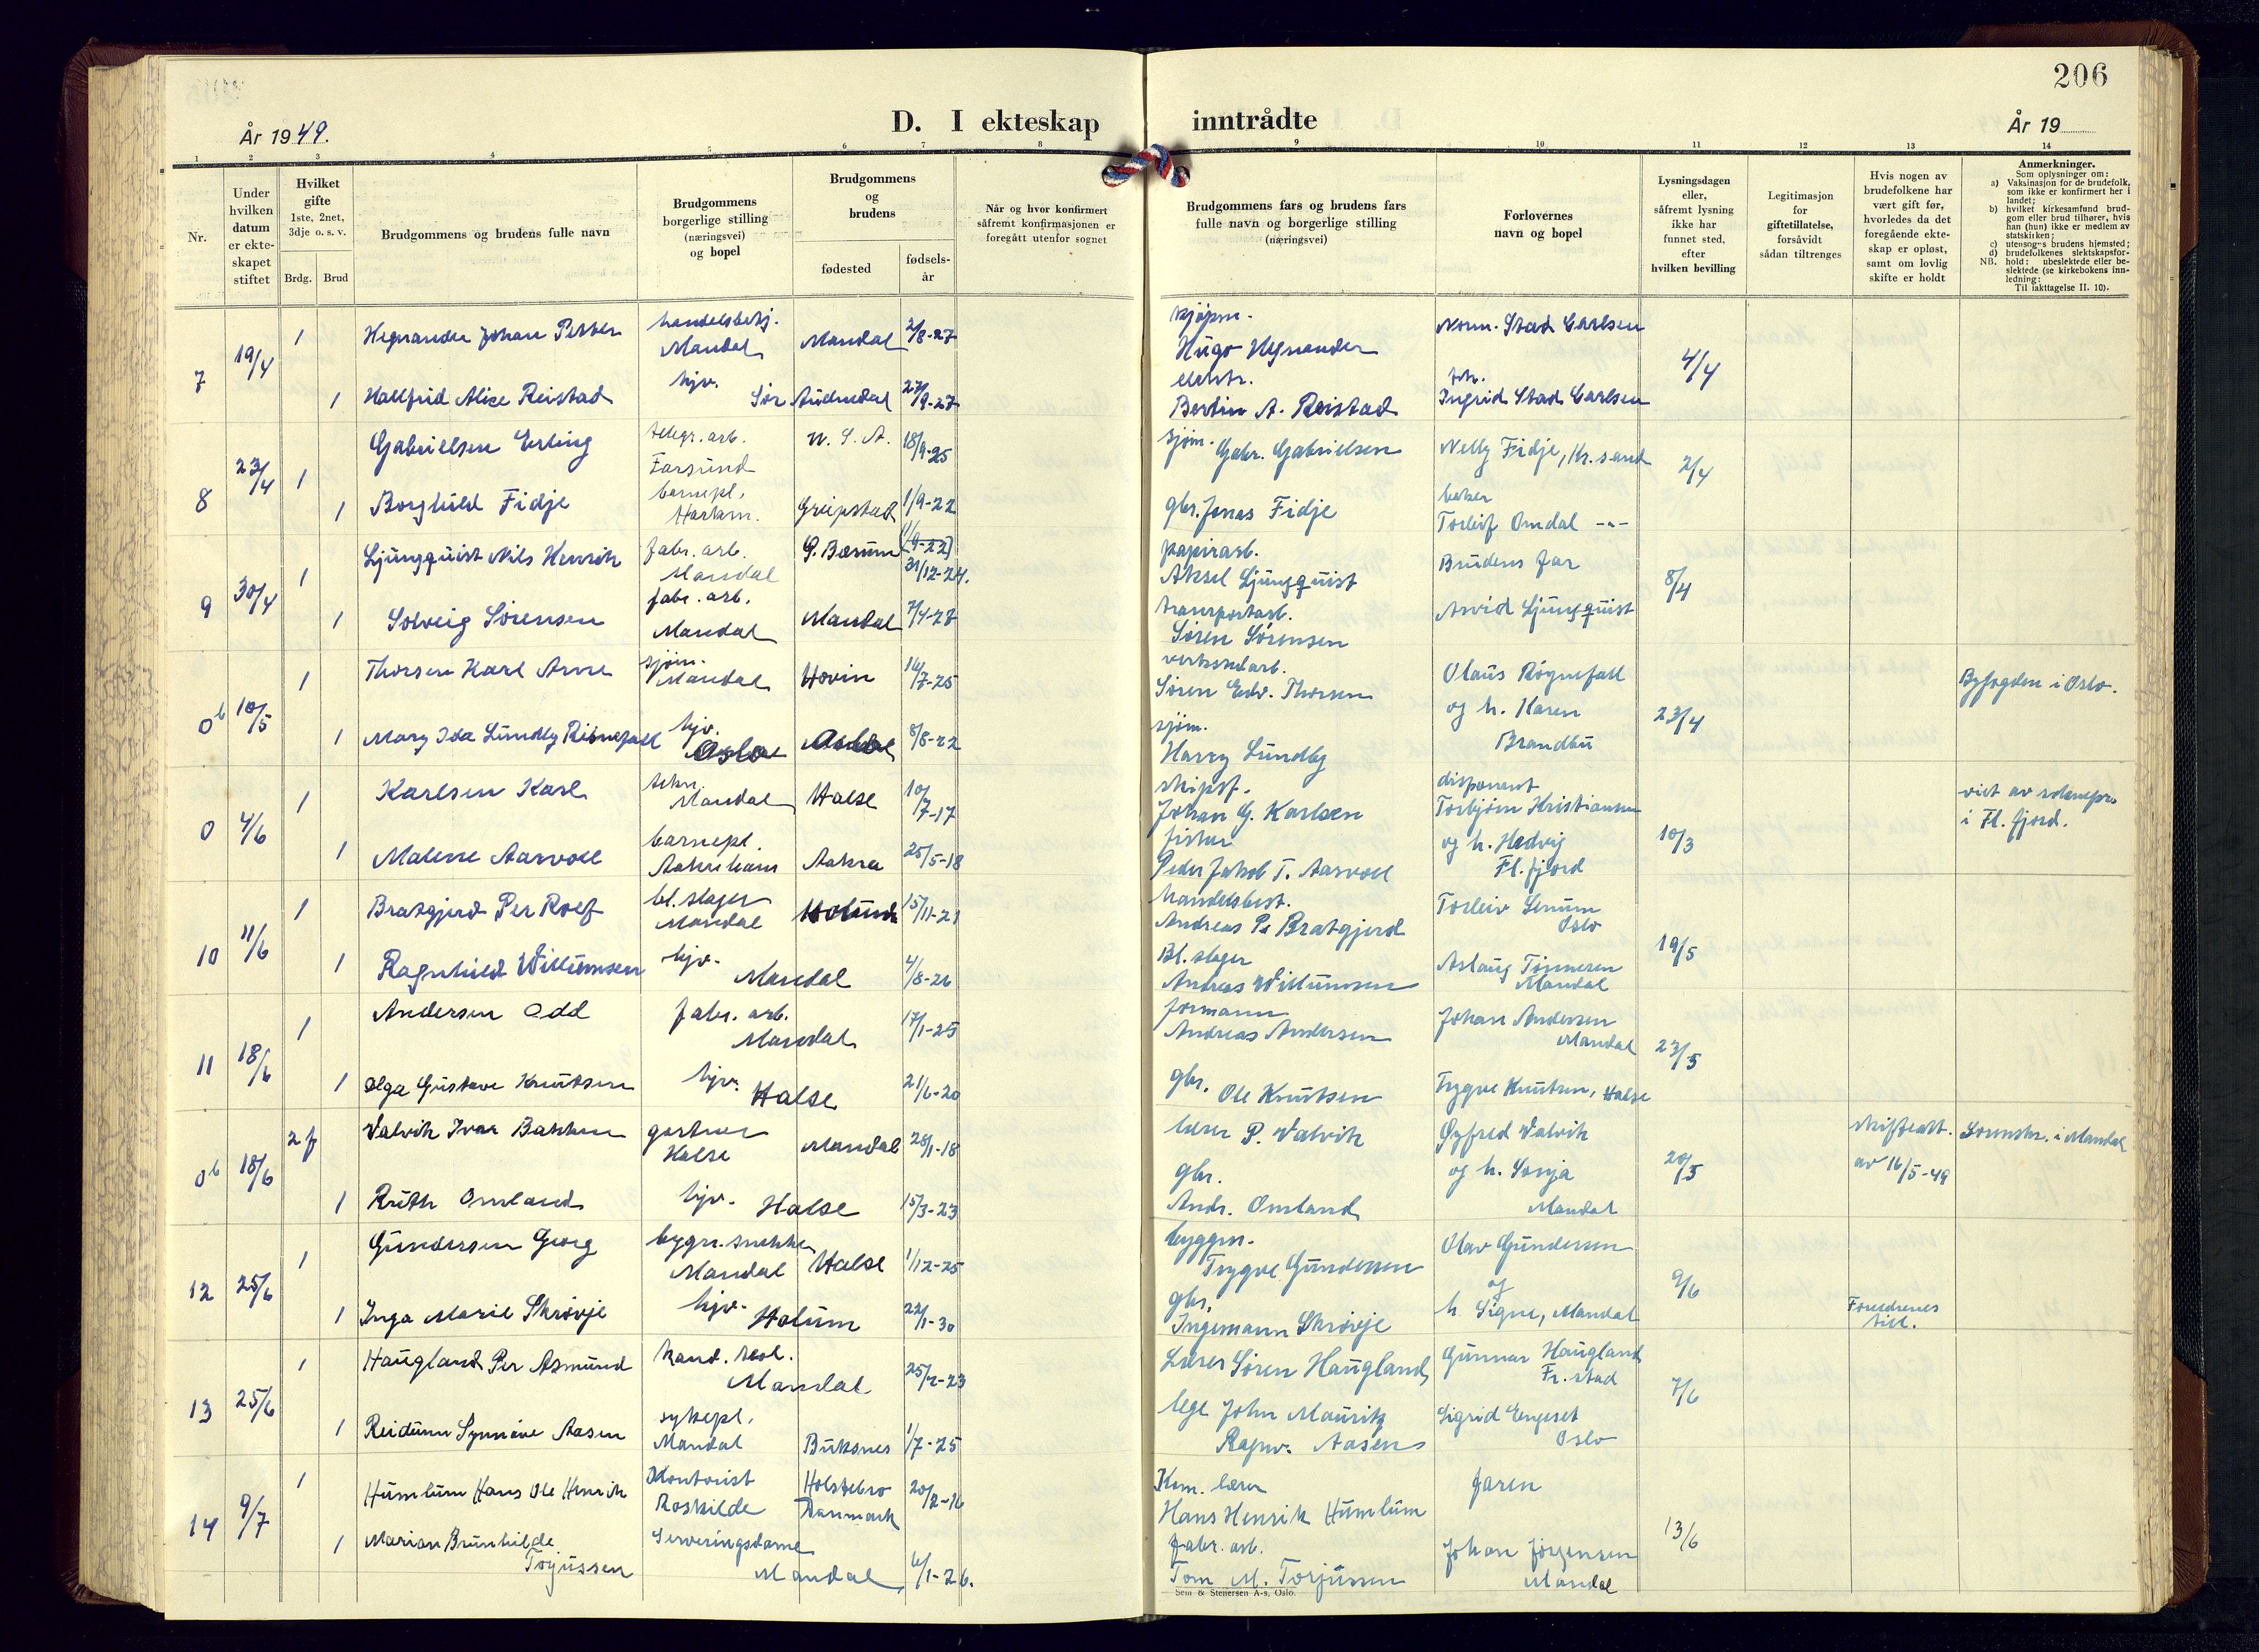 206
År 1949.
D. I ekteskap inntrådte
År 19
1 2 3 4 5 6 7 8 9 10 11 12 13 14
Nr.
Under hvilken datum er ekte- skapet stiftet
Hvilket gifte 1ste, 2net, 3dje o. s. v.
Brdg. Brud
Brudgommens og brudens fulle navn
Brudgommens borgerlige stilling (næringsvei) og bopel
Brudgommens og brudens
fødested
fødsels- år
Når og hvor konfirmert såfremt konfirmasjonen er foregått utenfor sognet
Brudgommens fars og brudens fars fulle navn og borgerlige stilling (næringsvei)
Forlovernes navn og bopel
Lysningsdagen eller, såfremt lysning ikke har funnet sted, efter hvilken bevilling
Legitimasjon for giftetillatelse, forsåvidt sådan tiltrenges
Hvis nogen av brudefolkene har vært gift før, hvorledes da det foregående ekte- skap er opløst, samt om lovlig skifte er holdt
Anmerkninger.
Som oplysninger om:
a) Vaksinasjon for de brudefolk, som ikke er konfirmert her i landet;
b) hvilket kirkesamfund brud- gom eller brud tilhører, hvis han (hun) ikke er medlem av statskirken;
c) utensogns brudens hjemsted;
d) brudefolkenes slektskapsfor- hold: ubeslektede eller be- slektede (se kirkebokens inn- ledning:
NB.
Til iakttagelse II. 10).
7 19/4 1 Hegnander Johan Petter handelsbetj. Mandal Mandal 2/8-27 Hugo Hegnander Norm. Stad Carlsen 4/4
1 Hallfrid Alice Reistad hjv. Sør Audnedal 27/9-27 elektr. Bertin A. Reistad frk. Ingrid Stad Carlsen
8 23/4 1 Gabrielsen Erling telegr. arb. Farsund U. S. A. 18/9-25 sjøm. Gabr. Gabrielsen Nelly Fidje, Kr. sand 2/4
1 Borghild Fidje barnepl. Greipstad 1/9-22 gbr. Jonas Fidje baker Torleif Omdal -"-
9 30/4 1 Ljungquist Nils Henrik fabr. arb. Mandal Ø. Bærum (1/9-22) 31/12-24. papirarb. Aksel Ljungquist Brudens far 8/4
1 Solveig Sørensen fabr. arb. Mandal Mandal 7/4-28 transportarb. Søren Sørensen Arvid Ljungquist
0b 10/5 1 Thorsen Karl Arne sjøm. Mandal Hovin 16/7-25 verkstedarb. Søren Edv. Thorsen Olaus Røgnefall 23/4 Byfogden i Oslo.
1 Mary Ida Lundby Risnefall hjv. Oslo 8/8-22 sjøm. Harry Lundby og h. Karen Brandbu
0 4/6 1 Karlsen Karl tekn. Mandal Halse 10/7-17 skipsf. Johan G. Karlsen disponent Torbjørn Kristiansen 10/3 viet av soknepr. i Fl. fjord.
1 Malene Aarvoll barnepl. Aakrehavn Aakra 25/5-18 fisker Peder Jakob T. Aarvoll og h. Hedvig Fl. fjord
10 11/6 1 Bratgjerd Per Rolf bl. slager Mandal 15/11-21 handelsbest. Andreas P. Bratgjerd Torleiv Lenum Oslo 19/5
1 Ragnhild Willumsen hjv. Mandal 4/8-26 Bl. slager Andreas Willumsen Aslaug Tønnesen Mandal
11 18/6 1 Andersen Odd fabr. arb. Mandal 17/1-25 formann Andreas Andersen Johan Andersen Mandal 23/5
1 Olga Gustave Knutsen hjv. Halse 21/6-20 gbr. Ole Knutsen Trygve Knutsen, Halse
0b 18/6 2 f Valvik Ivar Bakken gartner Halse Mandal 28/1-18 lærer P. Valvik Øyfred Valvik 20/5 skifteatt. av 16/5-49 Sorenskr. i Mandal
1 Ruth Omland hjv. Halse 15/3-23 gbr. Andr. Omland og h. Sonja Mandal
12 25/6 1 Gundersen Georg bygn. snekker Mandal Halse 1/12-25 byggm. Trygve Gundersen Olav Gundersen og 9/6
1 Inga Marie Skrøvje hjv. Holum 22/1-30 gbr. Ingemann Skrøvje h. Signe, Mandal Foreldrenes till.
13 25/6 1 Haugland Per Asmund kand. teol. Mandal 25/2-23 Lærer Søren Haugland Gunnar Haugland Fr. stad 7/6
1 Reidunn Synnøve Aasen sykepl. Mandal Buksnes 1/7-25 lege John Mauritz Ragnv. Aasen Sigrid Engeset Oslo
14 9/7 1 Humlum Hans Ole Henrik Kontorist Roskilde Holstebro Danmark 20/2-16 Kom. lærer Hans Henrik Humlum faren 13/6
1 Marian Brunhilde Torjussen Serveringsdame Mandal 6/1-26. fabr. arb. Tom M. Torjussen Johan Jørgensen Mandal
Sem & Stenersen A-s, Oslo.